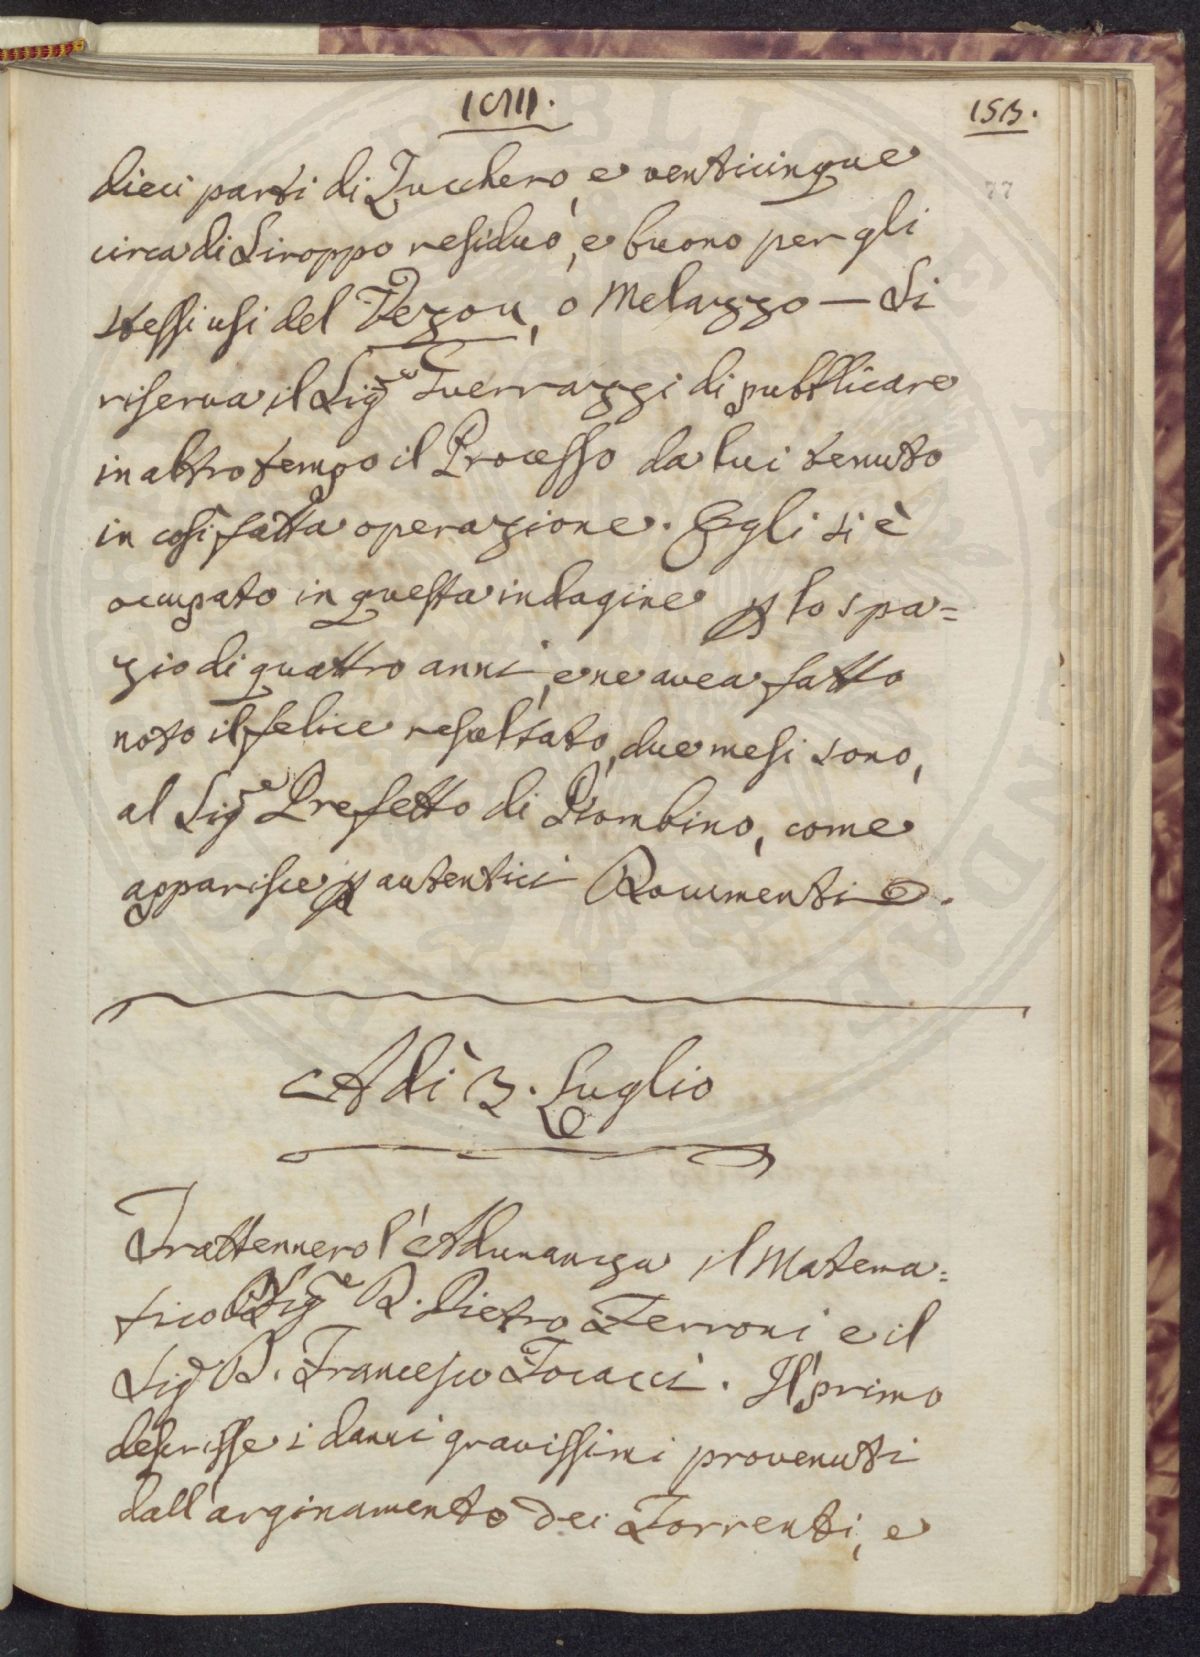 153.
77
dieci parti di Zucchero, e venticinque
circa di Siroppo residuo, e buono per gli
stessi usi del Vezou, o Melazzo — Si
riserva il Sig.re Guerrazzi di pubblicare
in altro tempo il Processo da lui tenuto
in così fatta operazione. Egli si è
occupato in questa indagine p lo spa=
zio di quattro anni, e ne avea fatto
noto il felice resultato, due mesi sono,
al Sig.e Prefetto di Piombino, come
apparisce p autentici Documenti.
Adì 3. Luglio
Trattennero l'Adunanza il Matema=
tico Sig.e D. Pietro Ferroni e il
Sig.e D. Francesco Focacci. Il primo
descrisse i danni gravissimi provenuti
dall'arginamento dei Torrenti, e